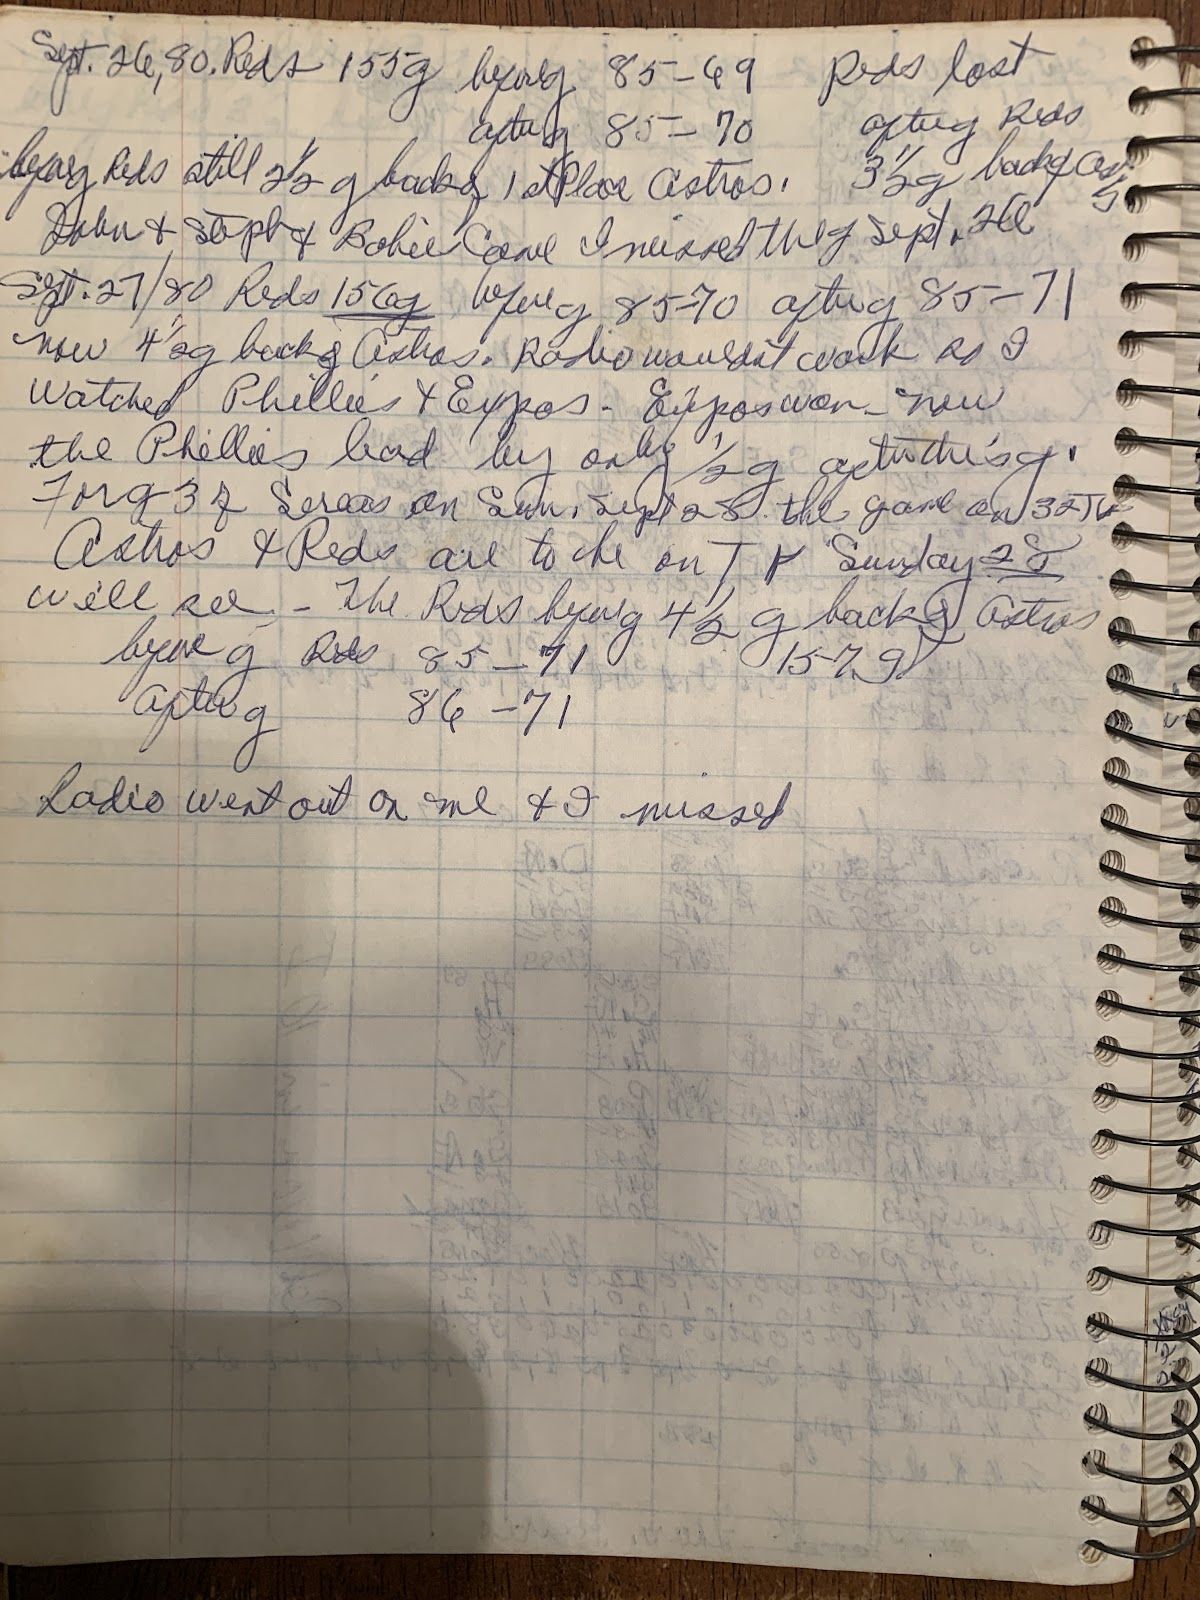 Sept. 26, 80. Reds 155g before g 85-69 Reds lost
after g 85-70 after g Reds
before g Reds still 2 1/2 g back of 1st Place Astros. 3 1/2 g back of
John & Steph & Bobie Came I missed the g Sept. 26
Sept. 27/80 Reds 156g before g 85-70 after g 85-71
now 4 1/2 g back of Astros. Radio wouldn't work so I
watched Phillies & Expos - Expos won - now
the Phillies lead by only 1/2 g after this g.
For g 3 of Series on Sun. Sept 28 the game on
Astros & Reds are to be on T V Sunday 28
will see - The Reds before g 4 1/2 g back of Astros
before g Reds 85-71 157g
After g 86-71
Radio went out on me & I missed